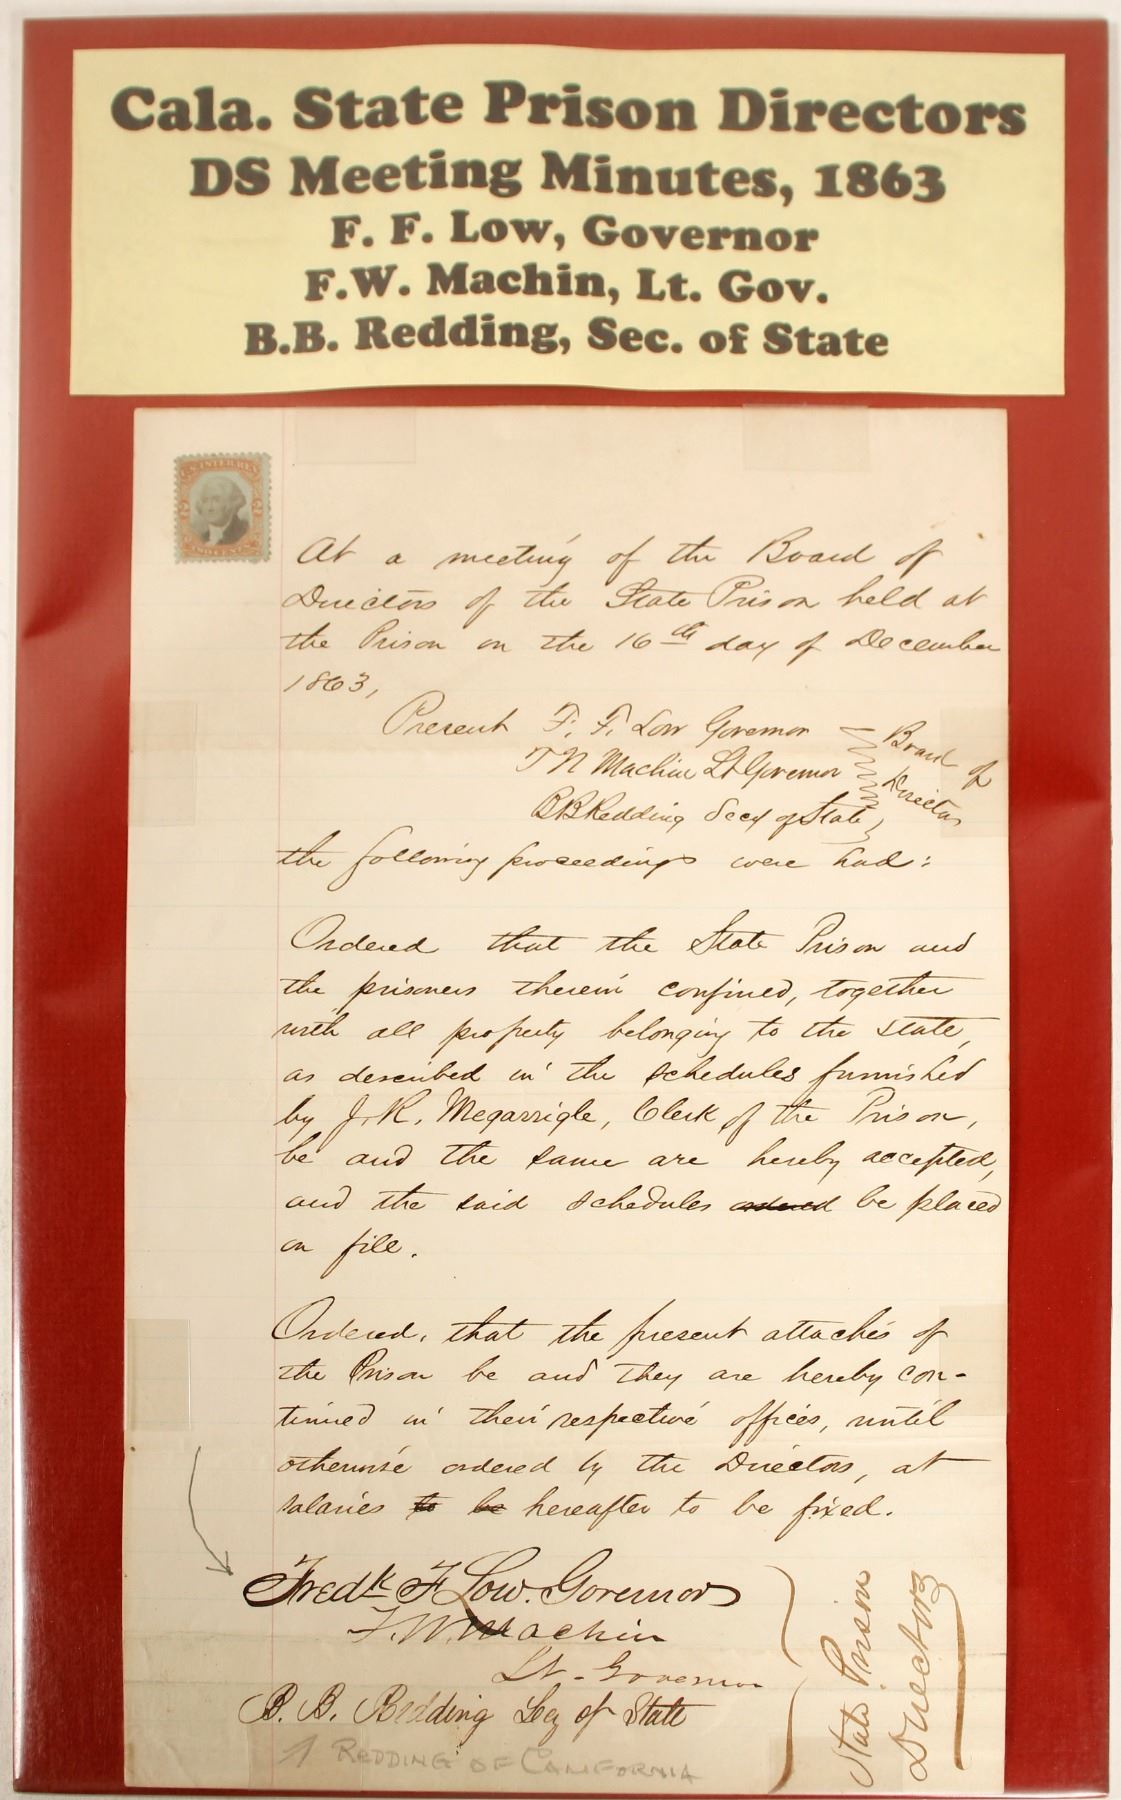 Cala. State Prison Directors
DS Meeting Minutes, 1863
F. F. Low, Governor
F.W. Machin, Lt. Gov.
B.B. Redding, Sec. of State
U.S. INTER. REV.
TWO CENTS
At a meeting of the Board of
Directors of the State Prison held at
the Prison on the 16th day of December
1863,
Present F. F. Low Governor
T N Machin Lt Governor
B B Redding Secy of State
Board of
Directors
the following proceedings were had:
Ordered that the State Prison and
the prisoners therein confined, together
with all property belonging to the state,
as described in the schedules furnished
by J. R. Megarrigle, Clerk of the Prison,
be and the same are hereby accepted,
and the said schedules ordered be placed
on file.
Ordered, that the present attachés of
the Prison be and they are hereby con-
tinued in their respective offices, until
otherwise ordered by the Directors, at
salaries to be hereafter to be fixed.
Fredk F Low. Governor
T. N. Machin
Lt - Governor
B. B. Redding Secy of State
State Prison
Directors
REDDING OF CALIFORNIA